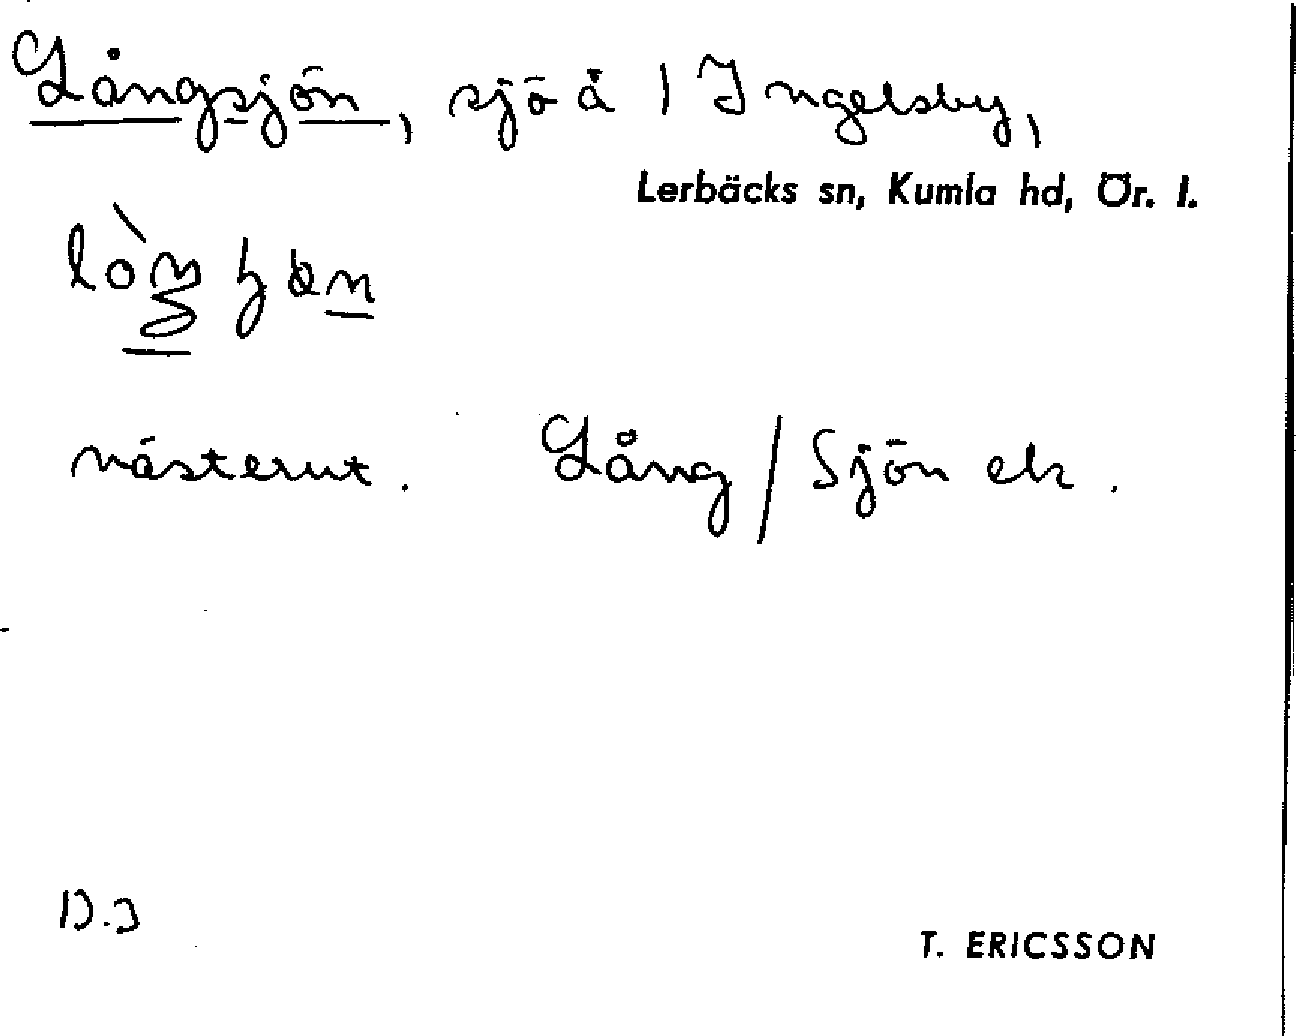 Långsjön, sjö å 1 Ingelsby,
Lerbäcks sn, Kumla hd, Ör. l.
västerut. Lång / Sjön ek.
D.J
T. ERICSSON